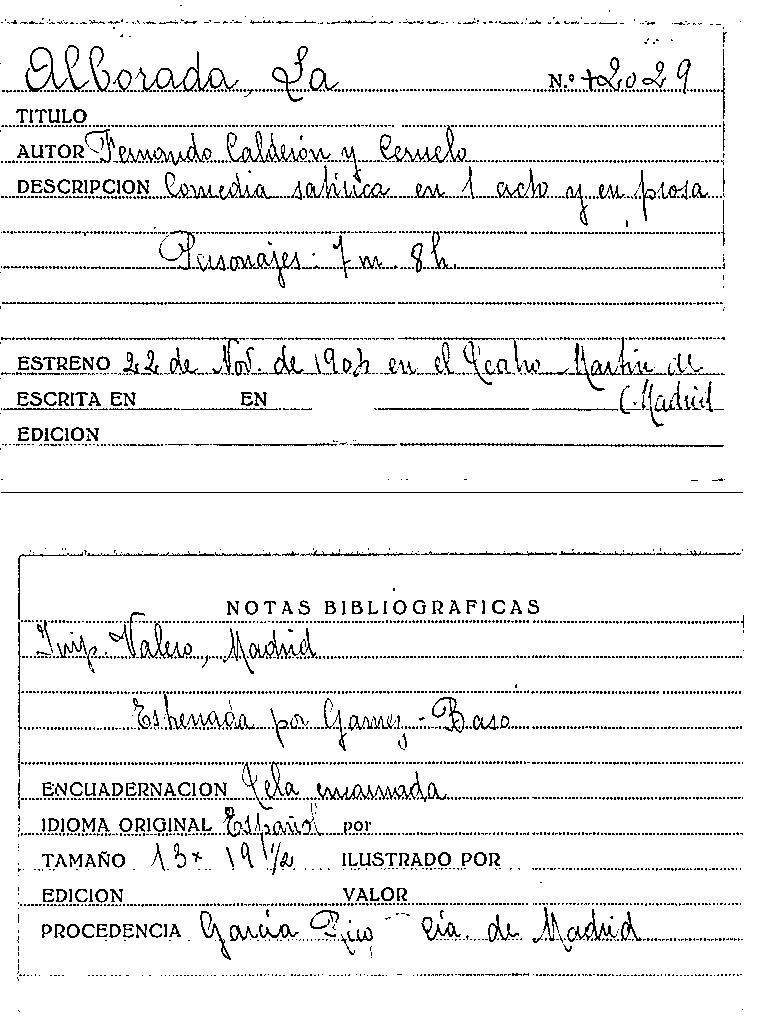 Alborada, La N.º +2029
TITULO
AUTOR Fernando Calderón y Ceruelo
DESCRIPCION Comedia satírica en 1 acto y en prosa
Personajes: 7 m. 8 h.
ESTRENO 22 de Nov. de en el Teatro Martín de
ESCRITA EN EN (Madrid
EDICION
NOTAS BIBLIOGRAFICAS
Imp. Valero, Madrid
Estrenada por Gamez - Baso
ENCUADERNACION Tela encarnada
IDIOMA ORIGINAL Español por
TAMAÑO 13 x 19 1/2 ILUSTRADO POR
EDICION VALOR
PROCEDENCIA García Rico, Cía. de Madrid